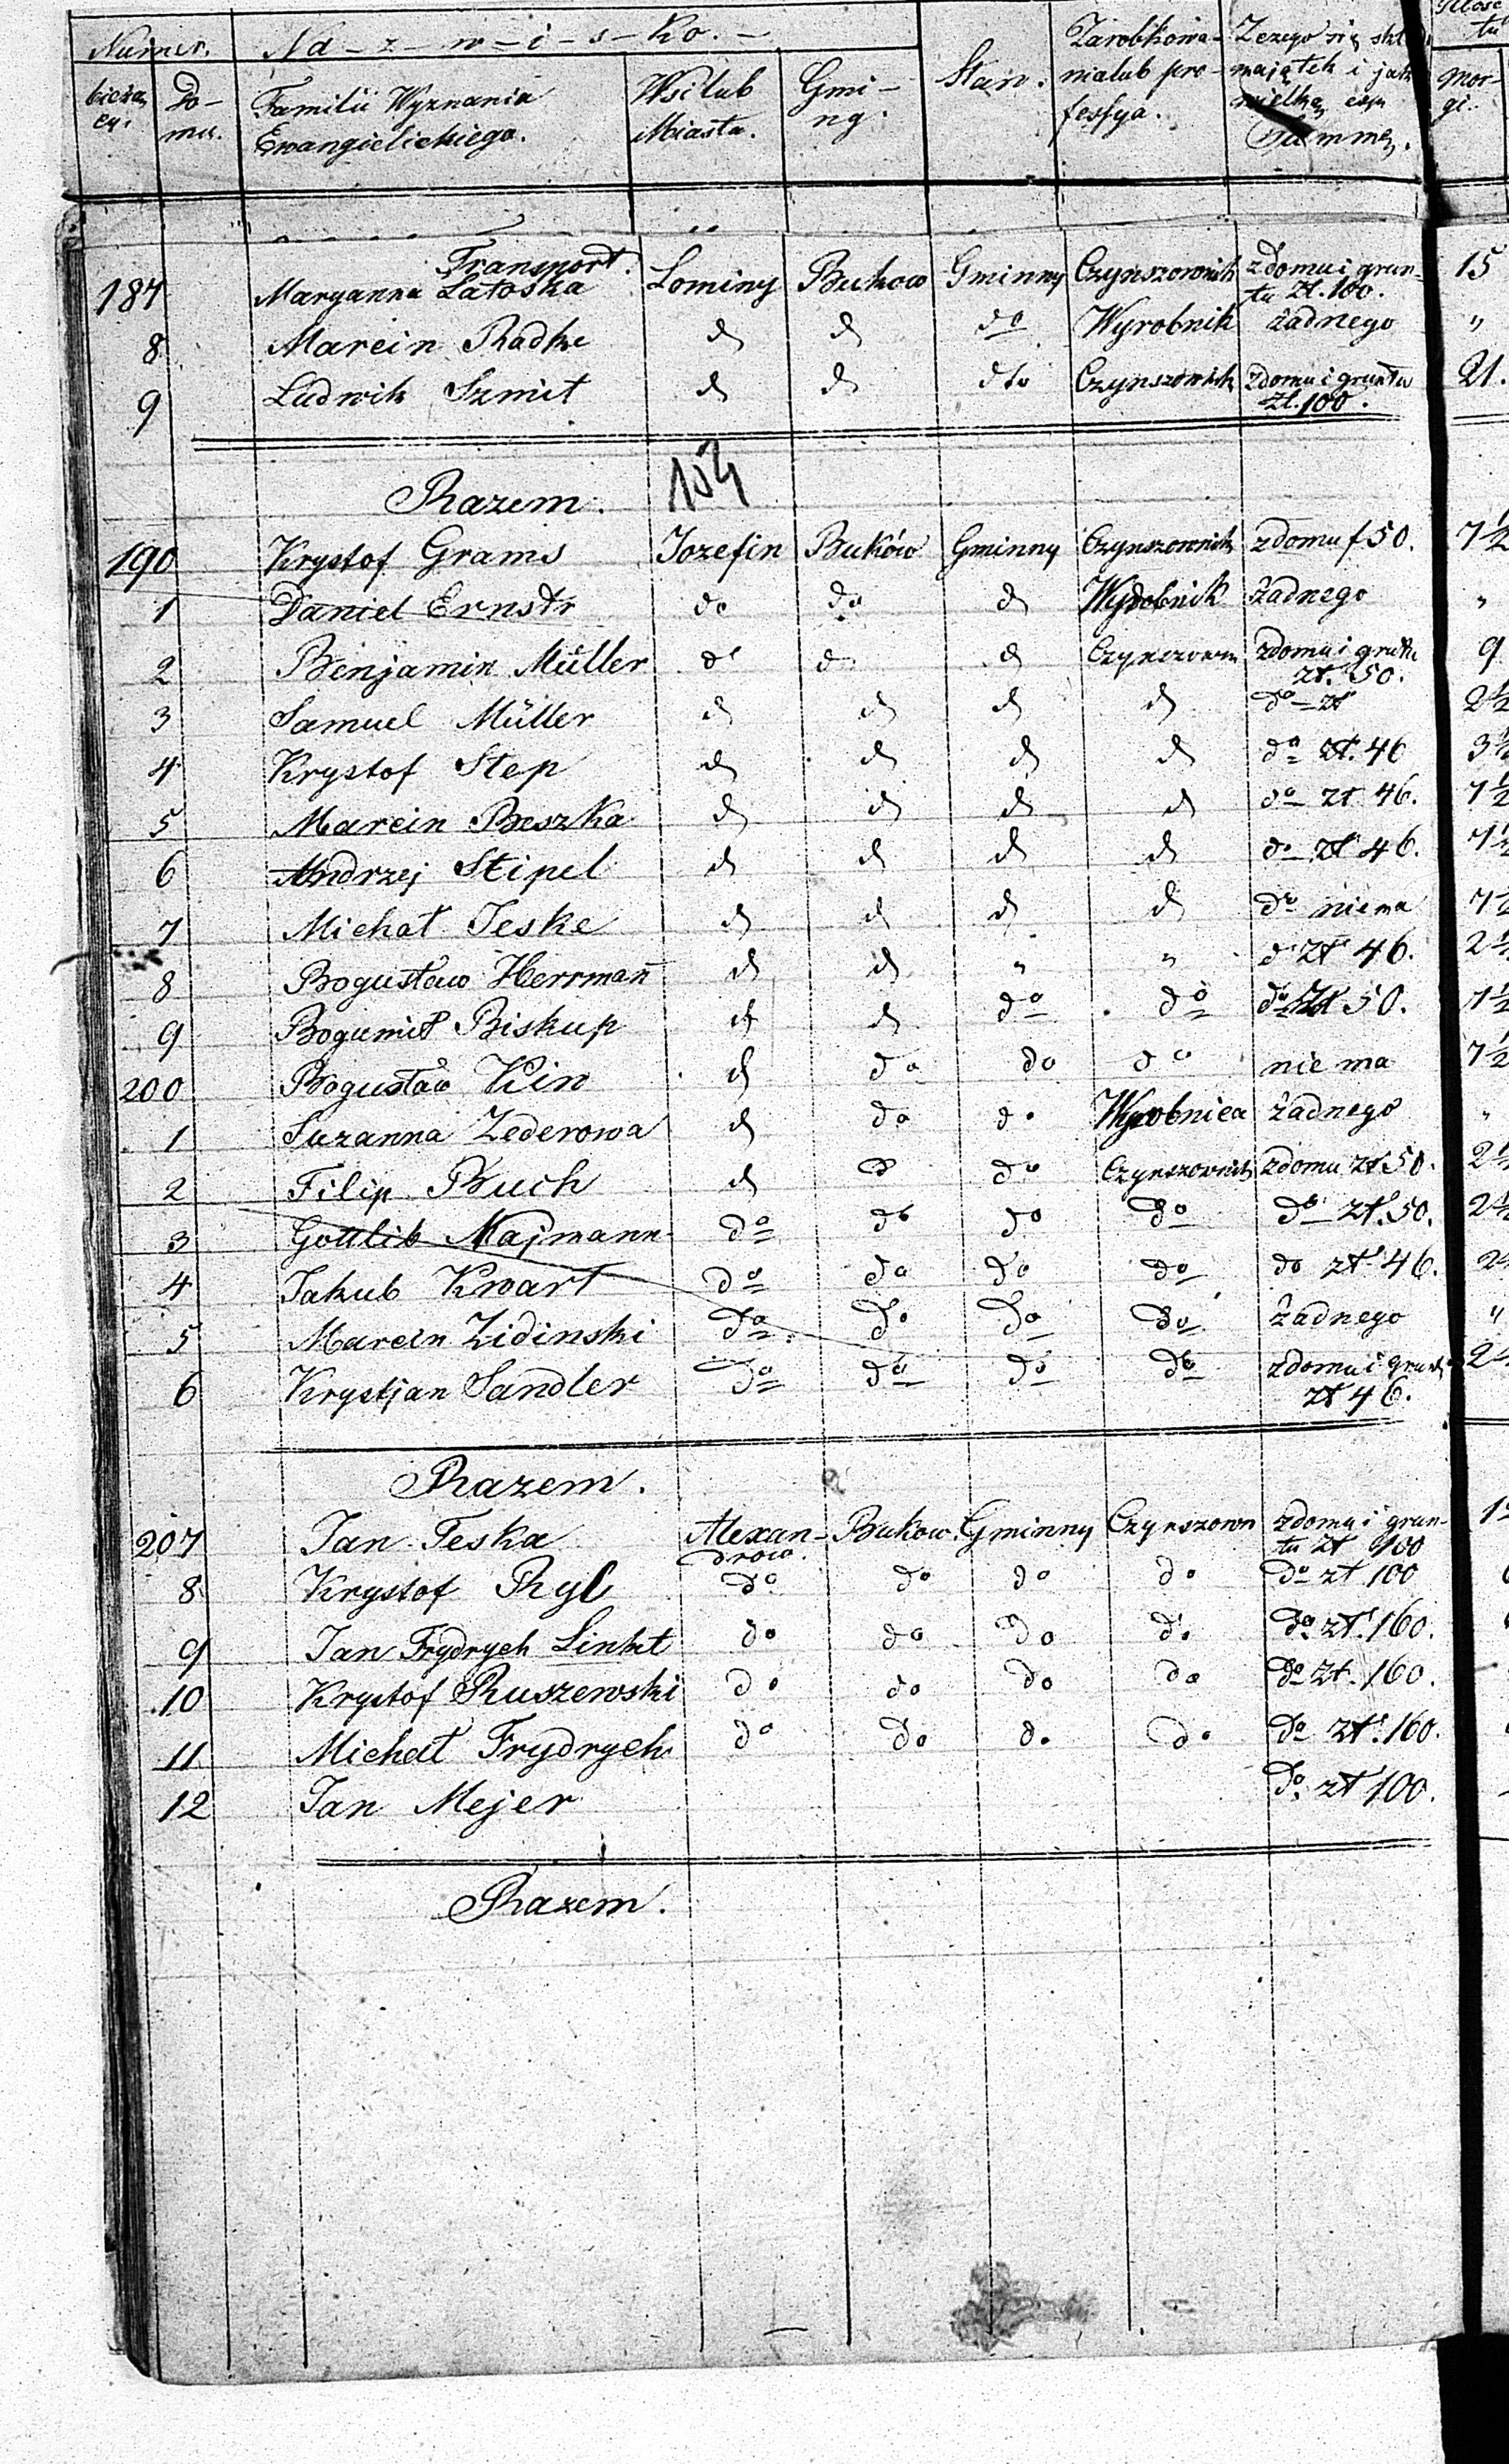 Numer. Na-z-w-i-s-ko.- Stan. Zarobkowa- Z czego się skł
Familii Wyznania Wsi lub Gmi- nia lub pro- majątek i jak Mor-
Do- Ewangielickiego. Miasta. ny. fessya. wielką czyn gi.
mu. Summę.
Transport.
187 Maryanna Latoska Lominy Bukow Gminny Czynszownik z domu i grun- 15
tu zł. 100.
8 Marcin Radke d d do Wyrobnik żadnego "
9 Ludwik Szmit d d dto Czynszownik z domu i gruntu 21.
zł. 100.
104
Razem.
190 Krystof Grams Jozefin Buków Gminny Czynszownik z domu f 50. 7½
1 Daniel Ernstr do do d Wyrobnik żadnego "
2 Benjamin Müller do d d Czynszown z domu i grutu 9
zł. 50.
3 Samuel Müller d d d d do - zł 2½
4 Krystof Step d d d d do zł. 46 3½
5 Marcin Beszka d d d d do zł 46. 7½
6 Andrzej Stipel d d d d do zł 46. 7½
7 Michał Jeske d d d d do niema 7½
8 Bogusław Herrmañ d d " " d zł 46. 2½
9 Bogumił Biskup d d do do do zł 50. 7½
200 Bogusław Kin d do do do nie ma 7½
1 Suzanna Zederowa d do do Wyrobnica żadnego "
2 Filip Buch d do do Czynszownik z domu zł 50. 2½
3 Gottlib Majmann do do do do do zł. 50. 2½
4 Jakub Kwart do do do do do zł 46.
5 Marcin Zidinski do do do do żadnego "
6 Krystjan Sandler do do do do z domu i grunt
zł 46.
Razem.
207 Jan Teska Alexan- Bukow. Gminny Czynszown z domu i grun-
drow. tu zł 100
8 Krystof Ryl do do do do do zł 100
9 Jan Frydrych Linkt do do do do do zł. 160.
10 Krystof Ruszewski do do do do do zł. 160.
11 Michał Frydrych do do do do do zł. 160.
12 Jan Mejer do zł 100.
Razem.